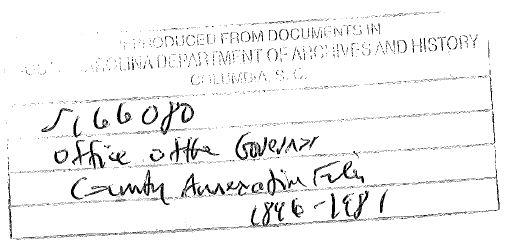 PRODUCED FROM DOCUMENTS IN
CAROLINA DEPARTMENT OF ARCHIVES AND HISTORY
COLUMBIA, S. C.
S166080
Office of the Governor
County Annexation Files
1896-1981